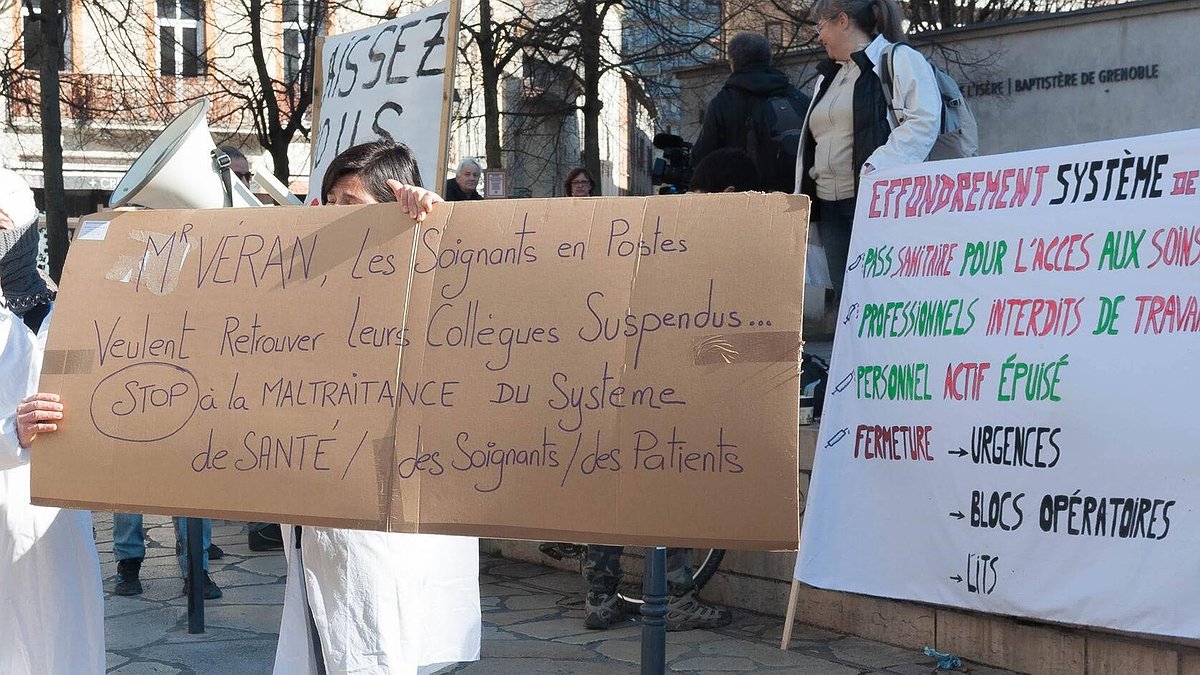 AISSEZ
US
L'ISÈRE | BAPTISTÈRE DE GRENOBLE
Mr VÉRAN, les Soignants en Postes
Veulent Retrouver leurs Collègues Suspendus...
STOP à la MALTRAITANCE DU Système
de SANTÉ / des Soignants / des Patients
EFFONDREMENT SYSTÈME DE
PASS SANITAIRE POUR L'ACCES AUX SOINS
PROFESSIONNELS INTERDITS DE TRAVA
PERSONNEL ACTIF ÉPUISÉ
FERMETURE → URGENCES
→ BLOCS OPÉRATOIRES
→ LITS